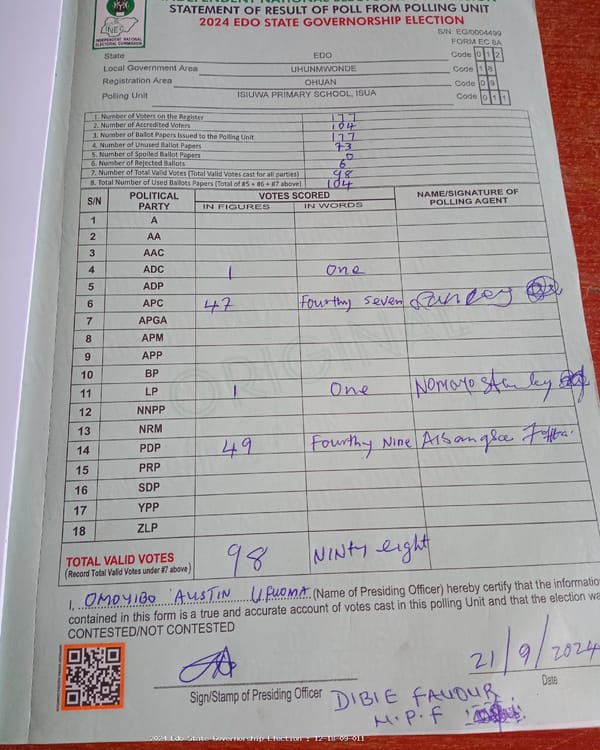 STATEMENT OF RESULT OF POLL FROM POLLING UNIT
2024 EDO STATE GOVERNORSHIP ELECTION
INEC
INDEPENDENT NATIONAL ELECTORAL COMMISSION
S/N: EG/0004499
FORM EC 8A
State EDO Code 0 1 2
Local Government Area UHUNMWONDE Code 1 8
Registration Area OHUAN Code 0 9
Polling Unit ISIUWA PRIMARY SCHOOL, ISUA Code 0 1 1
1. Number of Voters on the Register 177
2. Number of Accredited Voters 104
3. Number of Ballot Papers Issued to the Polling Unit 177
4. Number of Unused Ballot Papers 73
5. Number of Spoiled Ballot Papers 0
6. Number of Rejected Ballots 6
7. Number of Total Valid Votes (Total Valid Votes cast for all parties) 98
8. Total Number of Used Ballots Papers (Total of #5 + #6 + #7 above) 104
S/N POLITICAL PARTY VOTES SCORED NAME/SIGNATURE OF POLLING AGENT
IN FIGURES IN WORDS
1 A
2 AA
3 AAC
4 ADC 1 One
5 ADP
6 APC 47 Fourthy Seven Sunday
7 APGA
8 APM
9 APP
10 BP
11 LP 1 One NOMAYO Stanley
12 NNPP
13 NRM
14 PDP 49 Fourthy Nine
15 PRP
16 SDP
17 YPP
18 ZLP
ORIGINAL
TOTAL VALID VOTES 98 NINTY eight
(Record Total Valid Votes under #7 above)
I, OMOYIBO AUSTIN UFUOMA (Name of Presiding Officer) hereby certify that the informatio
contained in this form is a true and accurate account of votes cast in this polling Unit and that the election wa
CONTESTED/NOT CONTESTED
21/9/2024
Sign/Stamp of Presiding Officer Date
DIBIE FAVOUR
N.P.F
2024 Edo State Governorship Election | 12-18-09-011